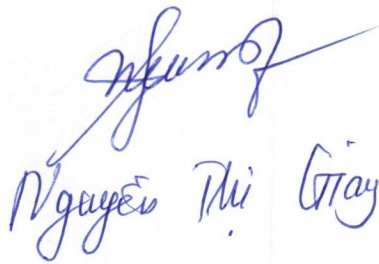 Nguyễn Thị Giay